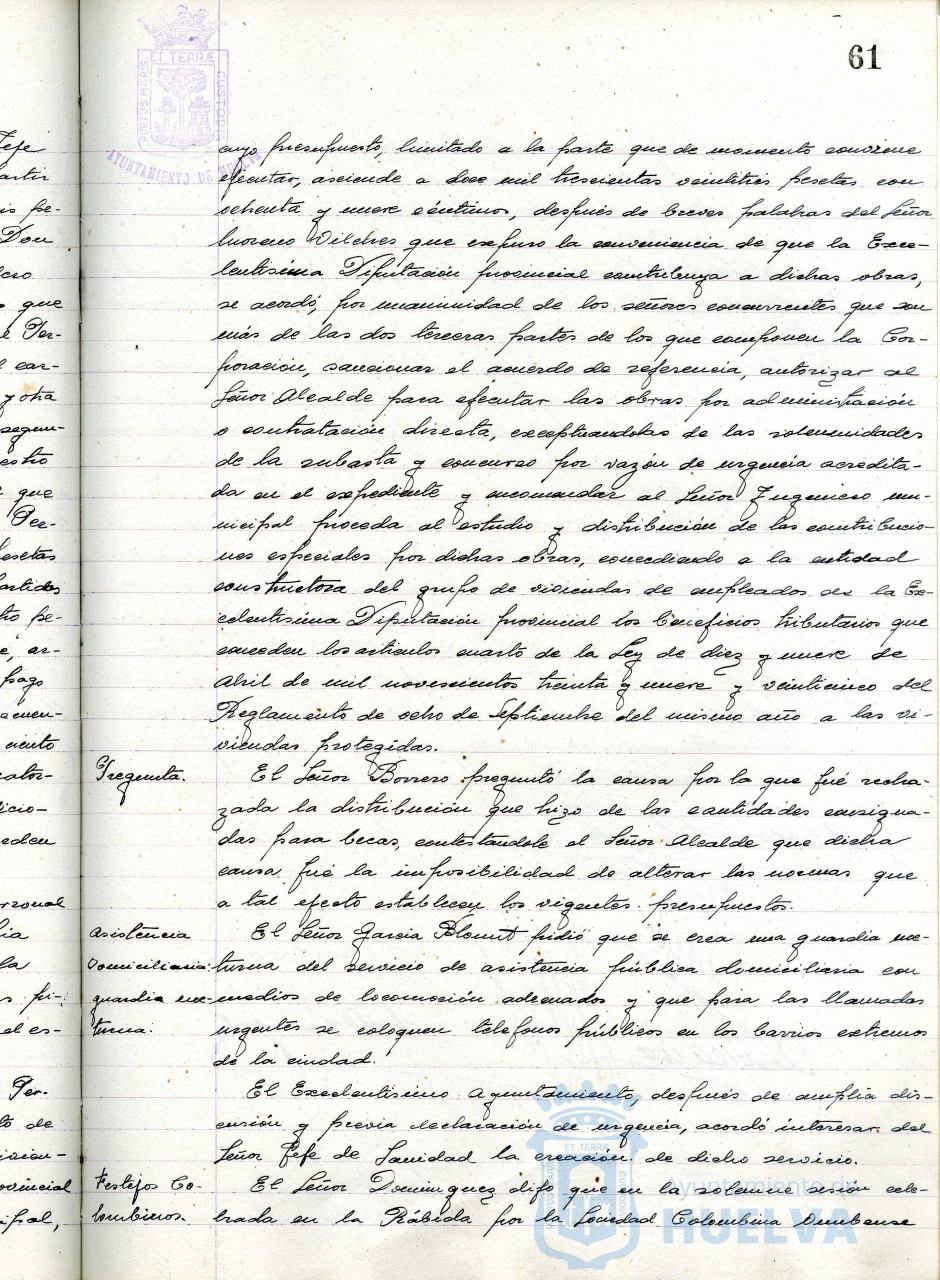 61
PORTUS MARIS ET TERRÆ CUSTODIA
AYUNTAMIENTO DE HUELVA
cuyo presupuesto, limitado a la parte que de momento conviene
ejecutar, asciende a doce mil trescientas veintitrés pesetas con
ochenta y nueve céntimos, después de breves palabras del Señor
Moreno Vilches que expuso la conveniencia de que la Exce-
lentísima Diputación provincial contribuya a dichas obras,
se acordó, por unanimidad de los señores concurrentes que son
más de las dos terceras partes de los que componen la Cor-
poración, sancionar el acuerdo de referencia, autorizar al
Señor Alcalde para ejecutar las obras por administración
o contratación directa, exceptuandolas de las solemnidades
de la subasta y concurso por razón de urgencia acredita-
da en el expediente y encomendar al Señor Ingeniero mu-
nicipal proceda al estudio y distribución de las contribucio-
nes especiales por dichas obras, concediendo a la entidad
constructora del grupo de viviendas de empleados de la Ex-
celentísima Diputación provincial los beneficios tributarios que
conceden los artículos cuarto de la Ley de diez y nueve de
Abril de mil novescientos treinta y nueve y veinticinco del
Reglamento de ocho de Septiembre del mismo año a las vi-
viendas protegidas.
Pregunta.
El Señor Borrero preguntó la causa por la que fué recha-
zada la distribución que hizo de las cantidades consigna-
das para becas, contestándole el Señor Alcalde que dicha
causa fué la imposibilidad de alterar las normas que
a tal efecto establecen los vigentes presupuestos.
Asistencia
Domiciliaria:
guardia noc-
turna.
El Señor Garcia Blount pidió que se crea una guardia noc-
turna del servicio de asistencia pública domiciliaria con
medios de locomoción adecuados y que para las llamadas
urgentes se coloquen telefonos públicos en los barrios extremos
de la ciudad.
El Excelentísimo Ayuntamiento, después de amplia dis-
cusión y previa declaración de urgencia, acordó interesar del
Señor Jefe de Sanidad la creación de dicho servicio.
Festejos Co-
lombinos.
El Señor Dominguez dijo que en la solemne sesión cele-
brada en la Rábida por la Sociedad Colombina Onubense
Ayuntamiento de
HUELVA